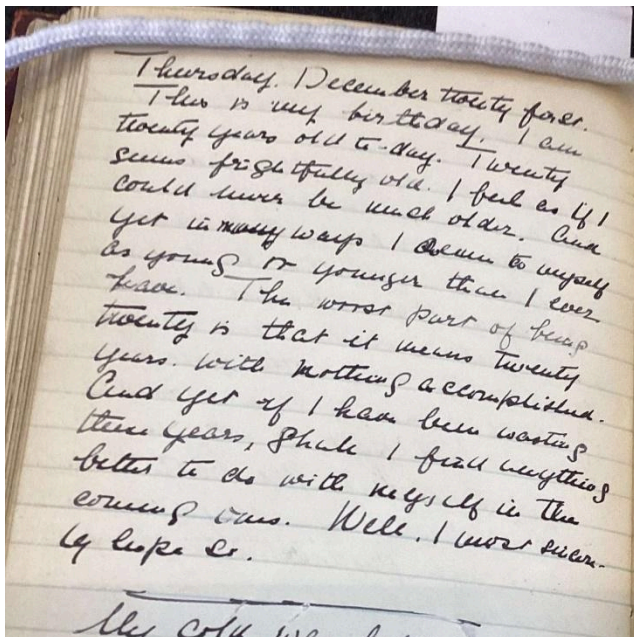 Thursday. December twenty first.
This is my birthday. I am
twenty years old to-day. Twenty
seems frightfully old. I feel as if I
could never be much older. And
yet in many ways I seem to myself
as young or younger than I ever
have. The worst part of being
twenty is that it means twenty
years. with nothing accomplished.
And yet if I have been wasting
these years, shall I find anything
better to do with myself in the
coming ones. Well. I most sincere-
ly hope so.
My cold